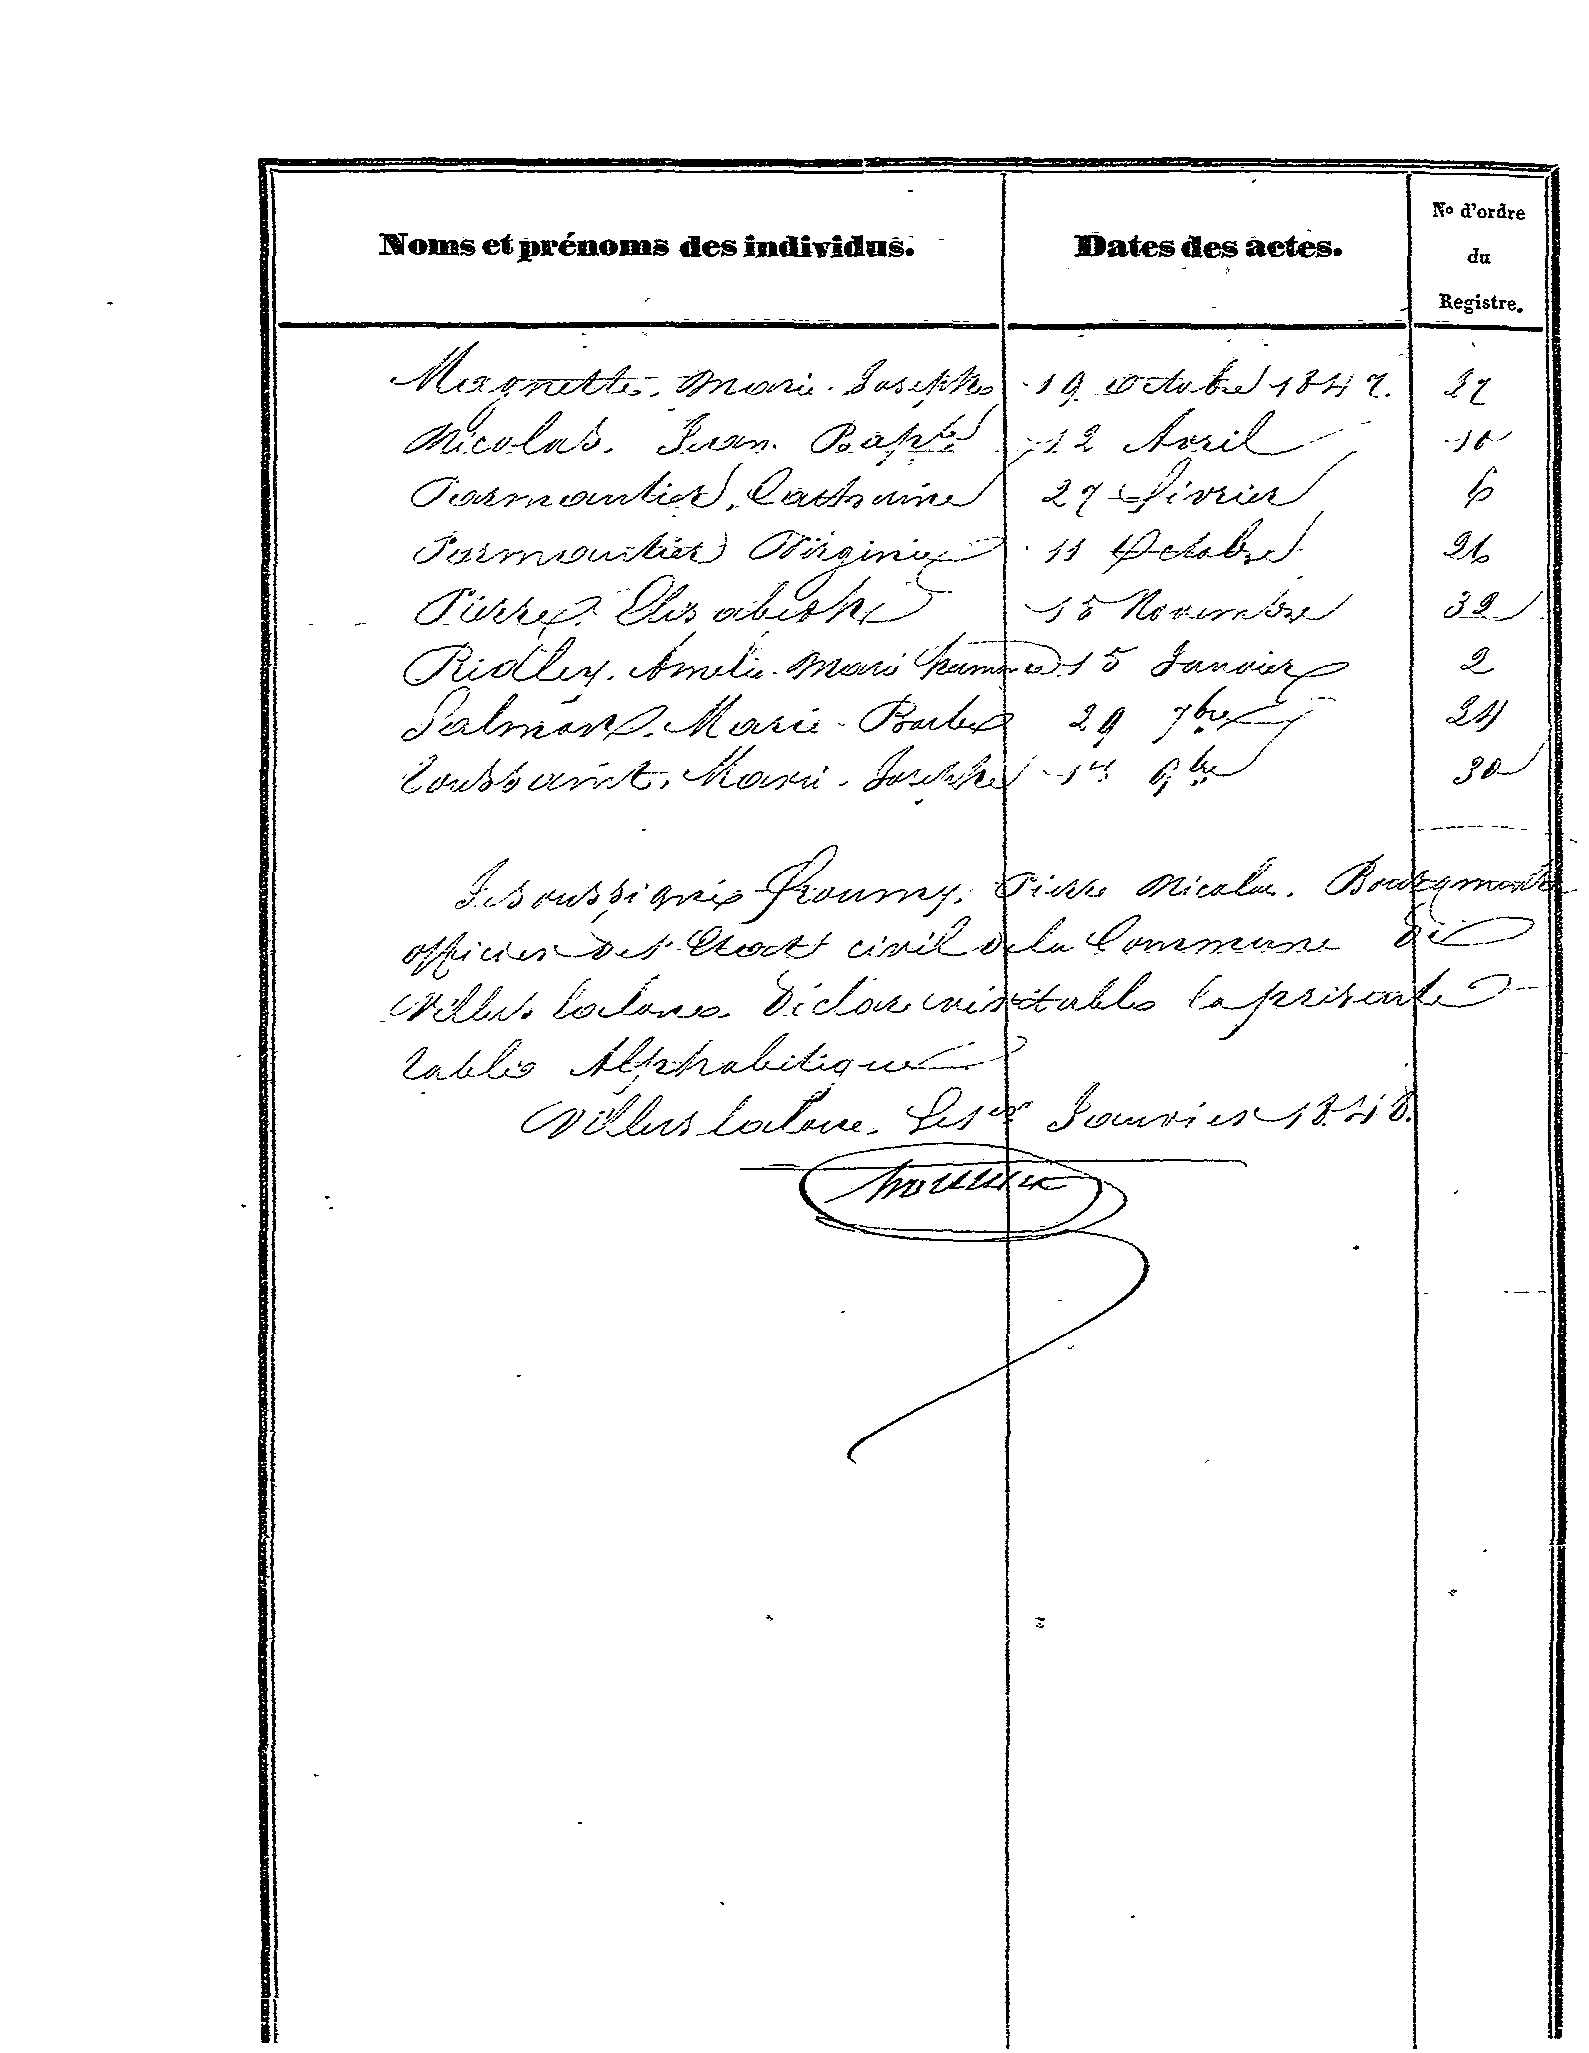 Noms et prénoms des individus. Dates des actes. No d'ordre du Registre.
Magnette. Marie. Josephe 19 Octobre 1847. 27
Nicolas. Jean. Bapte 12 Avril 10
Parmantier, Catherine 27 Février 6
Parmantier Virginie 11 Octobre 26
Pierre. Elisabethe 15 Novembre 32
Ridley. Amelie. Marie 15 Janvier 2
Salmon. Marie. Barbe 29 7bre 24
Toussaint. Marie. Josephe 1er 9bre 30
Je soussigné Pierre Nicolas. Bourgmestre
officier de l'Etat civil de la Commune de
Villers la loue. Déclare véritable la présente
table Alphabétique
Villers la loue. Le 1er Janvier 1848.